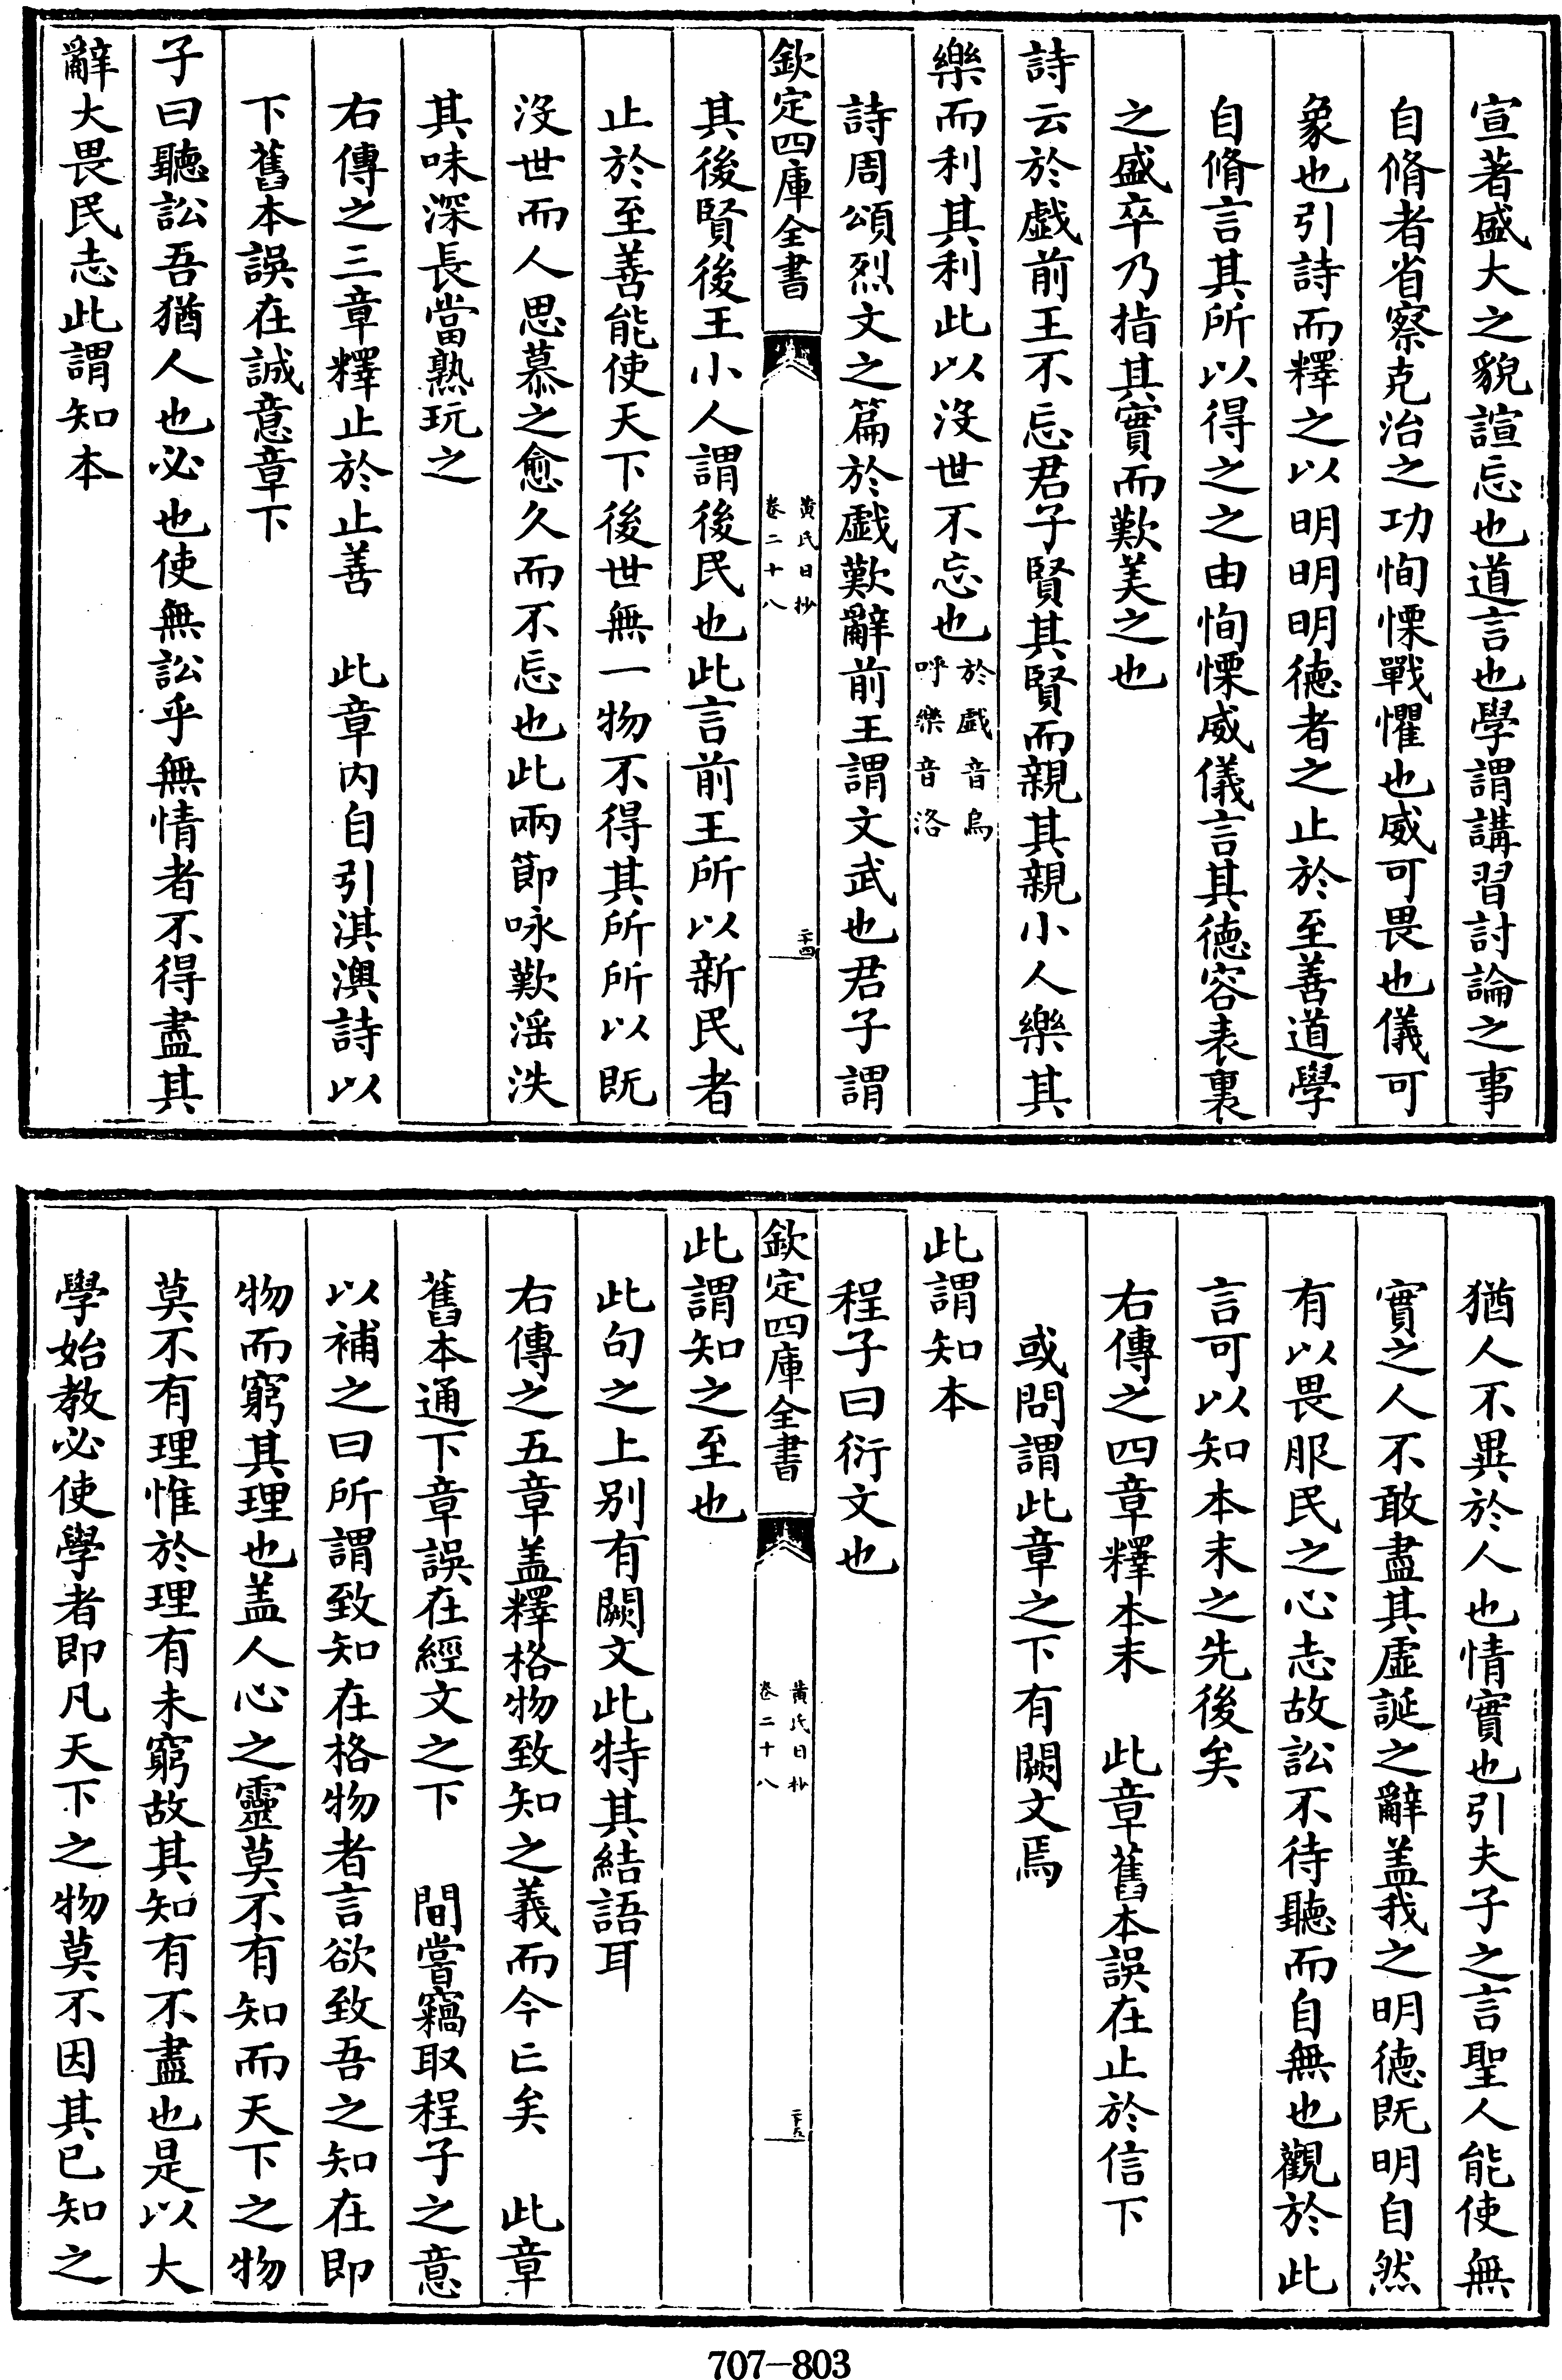 宣著盛大之貌諠忘也道言也學謂講習討論之事
自脩者省察克治之功恂慄戰懼也威可畏也儀可
象也引詩而釋之以明明明德者之止於至善道學
自脩言其所以得之之由恂慄威儀言其德容表裏
之盛卒乃指其實而歎美之也
詩云於戯前王不忘君子賢其賢而親其親小人樂其
樂而利其利此以沒世不忘也於戯音烏
呼樂音洛
詩周頌烈文之篇於戯歎辭前王謂文武也君子謂
欽定四庫全書
黃氏日抄
卷二十八
二十四
其後賢後王小人謂後民也此言前王所以新民者
止於至善能使天下後世無一物不得其所所以既
沒世而人思慕之愈久而不忘也此兩節咏歎淫泆
其味深長當熟玩之
右傳之三章釋止於止善　此章内自引淇澳詩以
下舊本誤在誠意章下
子曰聽訟吾猶人也必也使無訟乎無情者不得盡其
辭大畏民志此謂知本
猶人不異於人也情實也引夫子之言聖人能使無
實之人不敢盡其虛誕之辭盖我之明德既明自然
有以畏服民之心志故訟不待聽而自無也觀於此
言可以知本末之先後矣
右傳之四章釋本末　此章舊本誤在止於信下
或問謂此章之下有闕文焉
此謂知本
程子曰衍文也
欽定四庫全書
黃氏日抄
卷二十八
此謂知之至也
此句之上别有闕文此特其結語耳
右傳之五章盖釋格物致知之義而今亡矣　此章
舊本通下章誤在經文之下　間嘗竊取程子之意
以補之曰所謂致知在格物者言欲致吾之知在即
物而窮其理也盖人心之靈莫不有知而天下之物
莫不有理惟於理有未窮故其知有不盡也是以大
學始教必使學者即凡天下之物莫不因其已知之
707—803